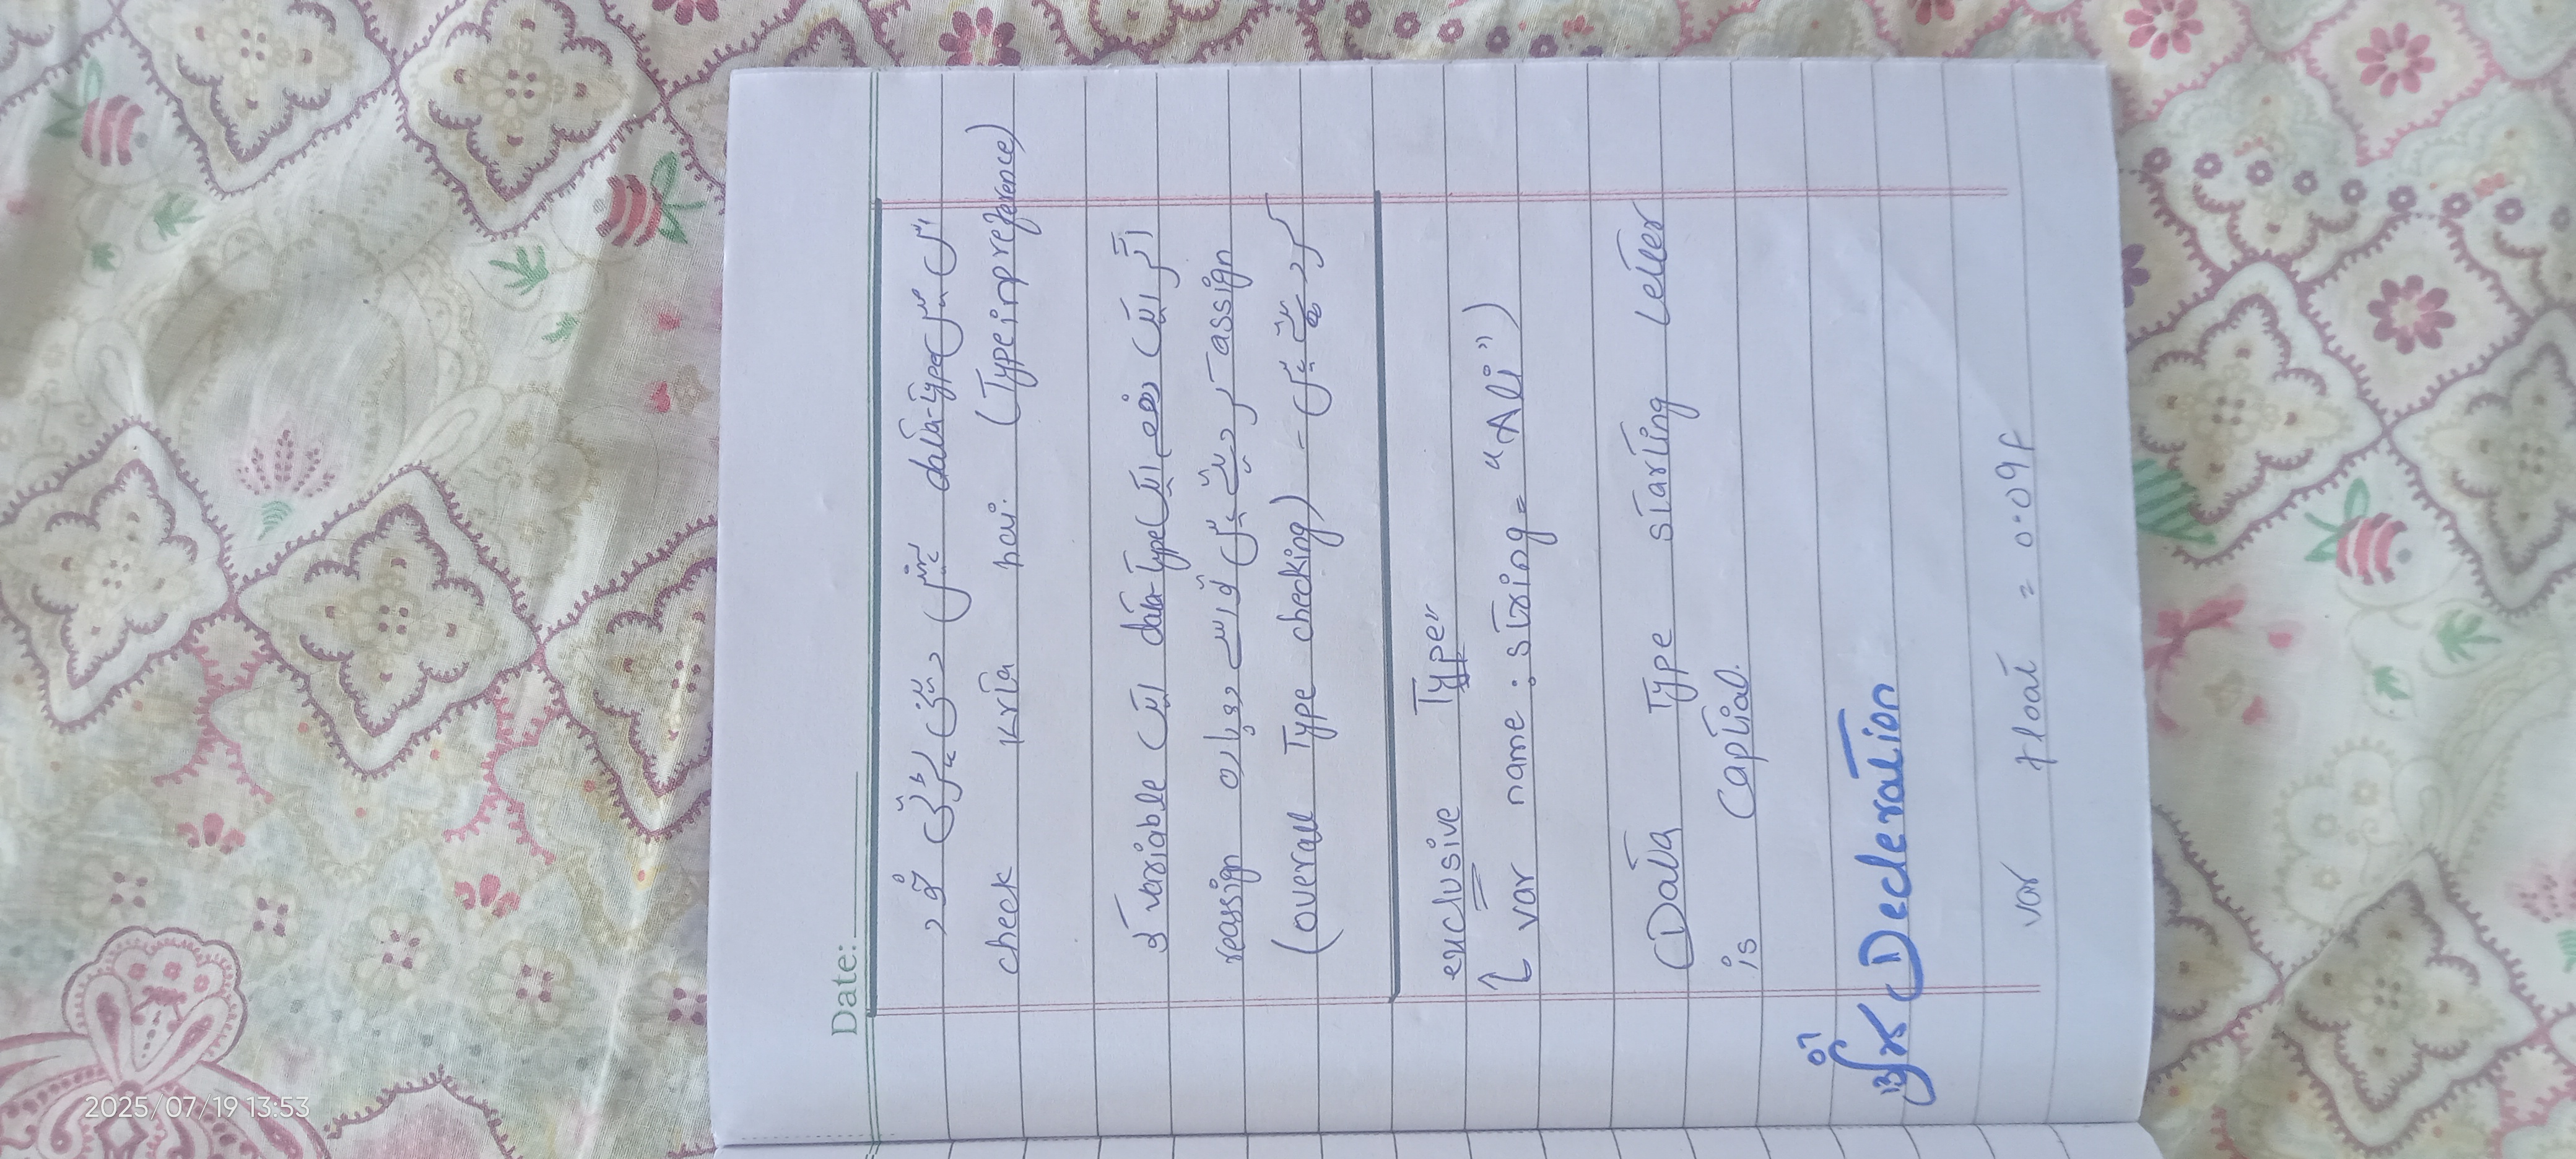 2025/07/19 13:53
Date:
اس میں data-Type نہیں دینی پڑتی خود
check krta hai. (Type inpreference)
اگر ایک دفعہ ایک data-Type ایک variable کو
assign کر دیتے ہیں تو اسے دوبارہ reassign
کر دیتے ہیں - (overall Type checking)
exclusive Type
var name : string = "Ali")
Data Type starting Letter
is Captial.
07
13 25 Decleration
var float = 0.09f